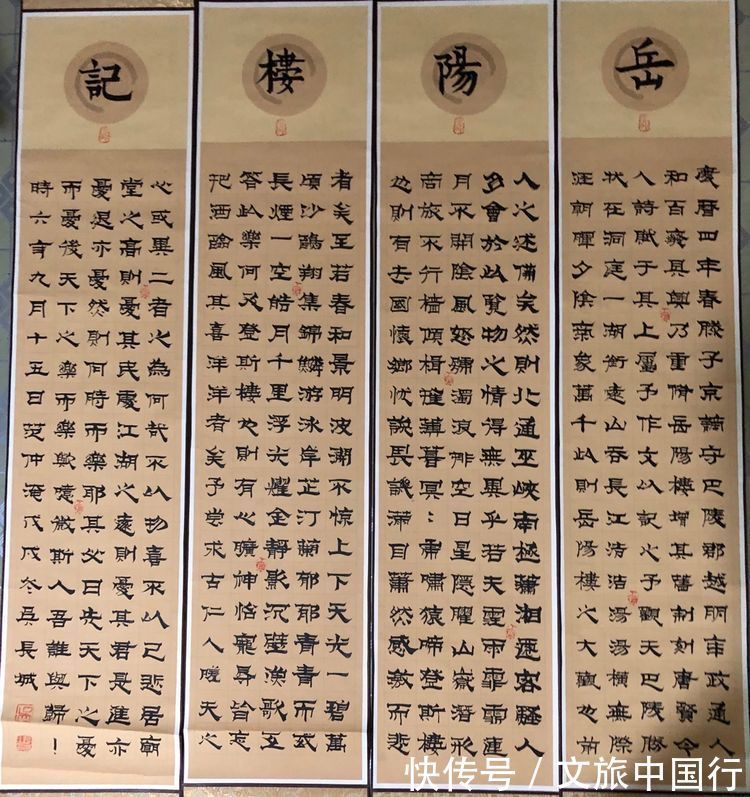 岳
慶曆四年春滕子京謫守巴陵郡越明年政通人
和百廢具興乃重脩岳陽樓增其舊制刻唐賢今
人詩賦于其上屬予作文以記之予觀天巴陵勝
狀在洞庭一湖銜遠山吞長江浩浩湯湯橫無際
涯朝暉夕陰氣象萬千此則岳陽樓之大觀也前
陽
人之述備矣然則北通巫峽南極瀟湘遷客騷人
多會於此覽物之情得無異乎若天霪雨霏霏連
月不開陰風怒號濁浪排空日星隱曜山嶽潛形
商旅不行檣傾楫摧薄暮冥冥虎嘯猿啼登斯樓
也則有去國懷鄉忧讒畏譏滿目蕭然感激而悲
樓
者矣至若春和景明波瀾不惊上下天光一碧萬
頃沙鷗翔集錦鱗游泳岸芷汀蘭郁郁青青而或
長煙一空皓月千里浮光耀金靜影沉璧漁歌互
答此樂何及登斯樓也則有心曠神怡寵辱皆忘
把酒臨風其喜洋洋者矣予嘗求古仁人嗟天之
記
心或異二者之為何哉不以物喜不以己悲居廟
堂之高則憂其民處江湖之遠則憂其君是進亦
憂退亦憂然則何時而樂耶其必曰先天下之憂
而憂後天下之樂而樂歟噫微斯人吾誰與歸！
時六年九月十五日范仲淹戊戌冬吳長城
快传号／文旅中国行